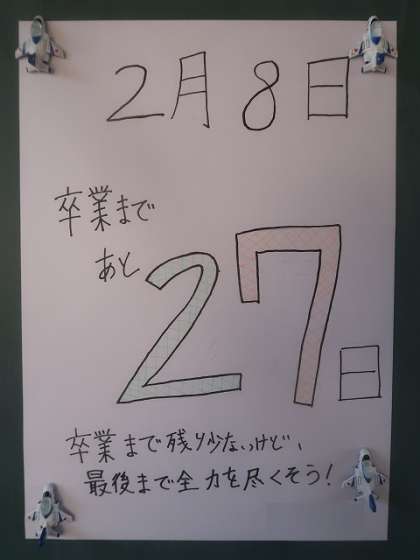 2月8日
卒業まで
あと
27日
卒業まで残り少ないけど、
最後まで全力を尽くそう!